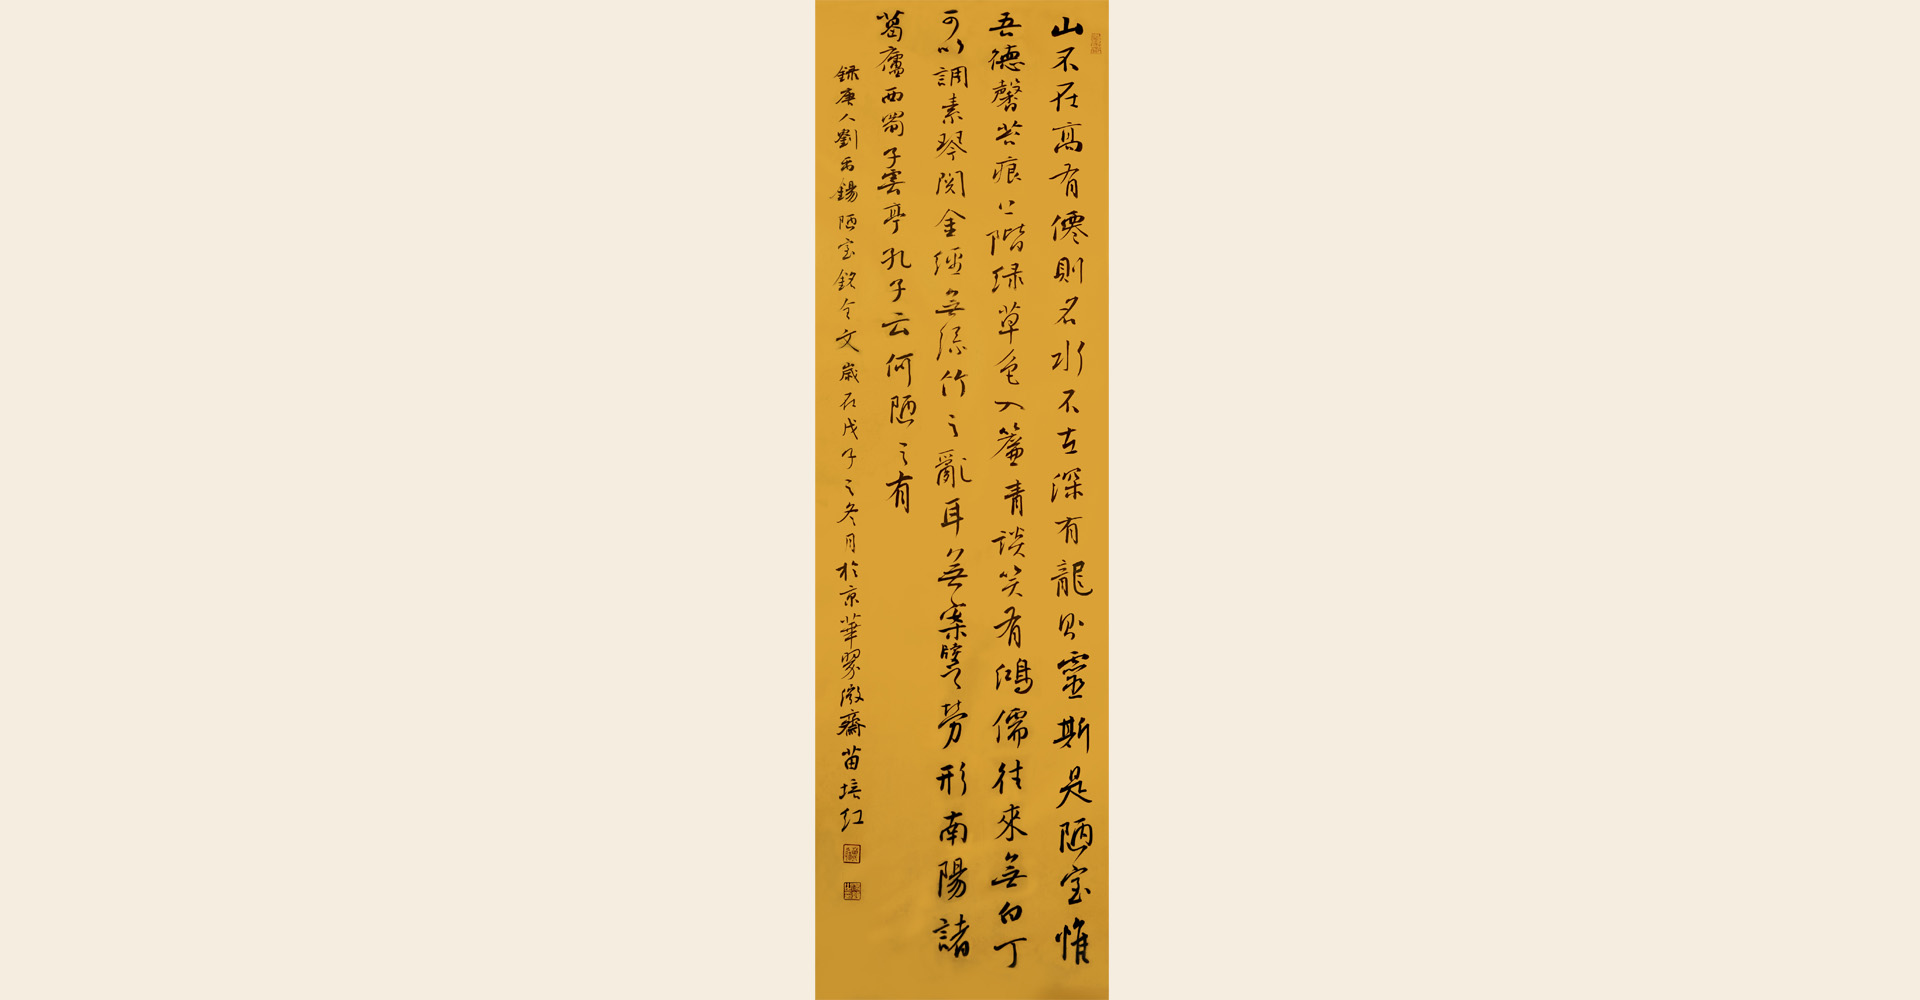 山不在高有僊則名水不在深有龍則靈斯是陋室惟
吾德馨苔痕上階緑草色入簾青談笑有鴻儒往來無白丁
可以調素琴閱金經無絲竹之亂耳無案牘之勞形南陽諸
葛廬西蜀子雲亭孔子云何陋之有
録唐人劉禹錫陋室銘全文歲在戊子之冬月於京華翠微齋苗培红